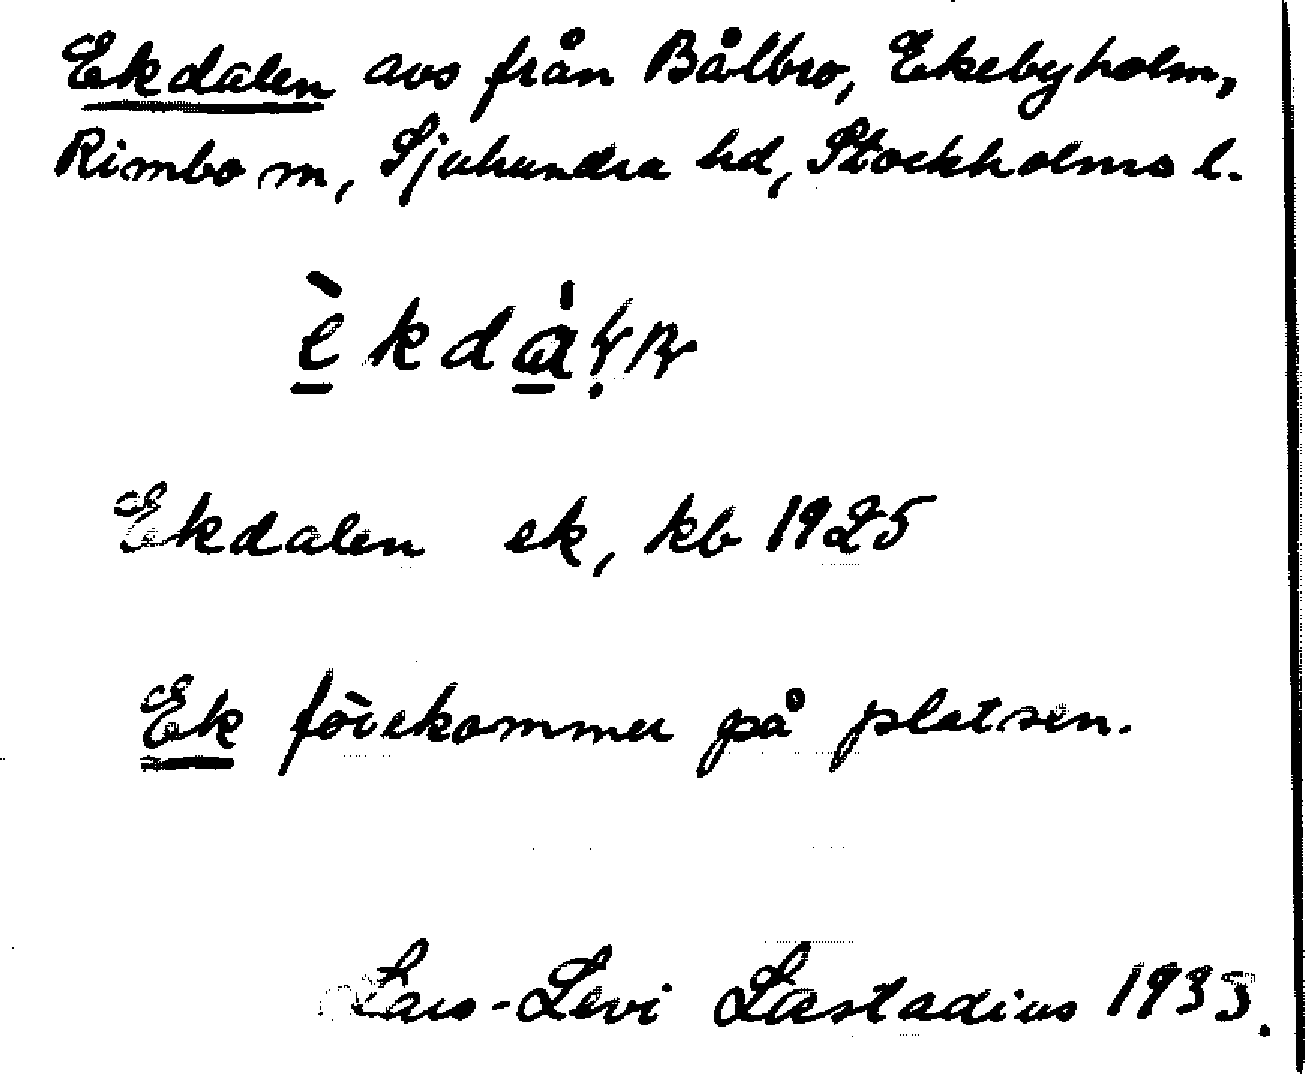 Ekdalen avs från Bålbro, Ekebyholm,
Rimbo sn, Sjuhundra hd, Stockholms l.
Ekdalen ek, kb 1925
Ek förekommer på platsen.
Lars-Levi Læstadius 1935.